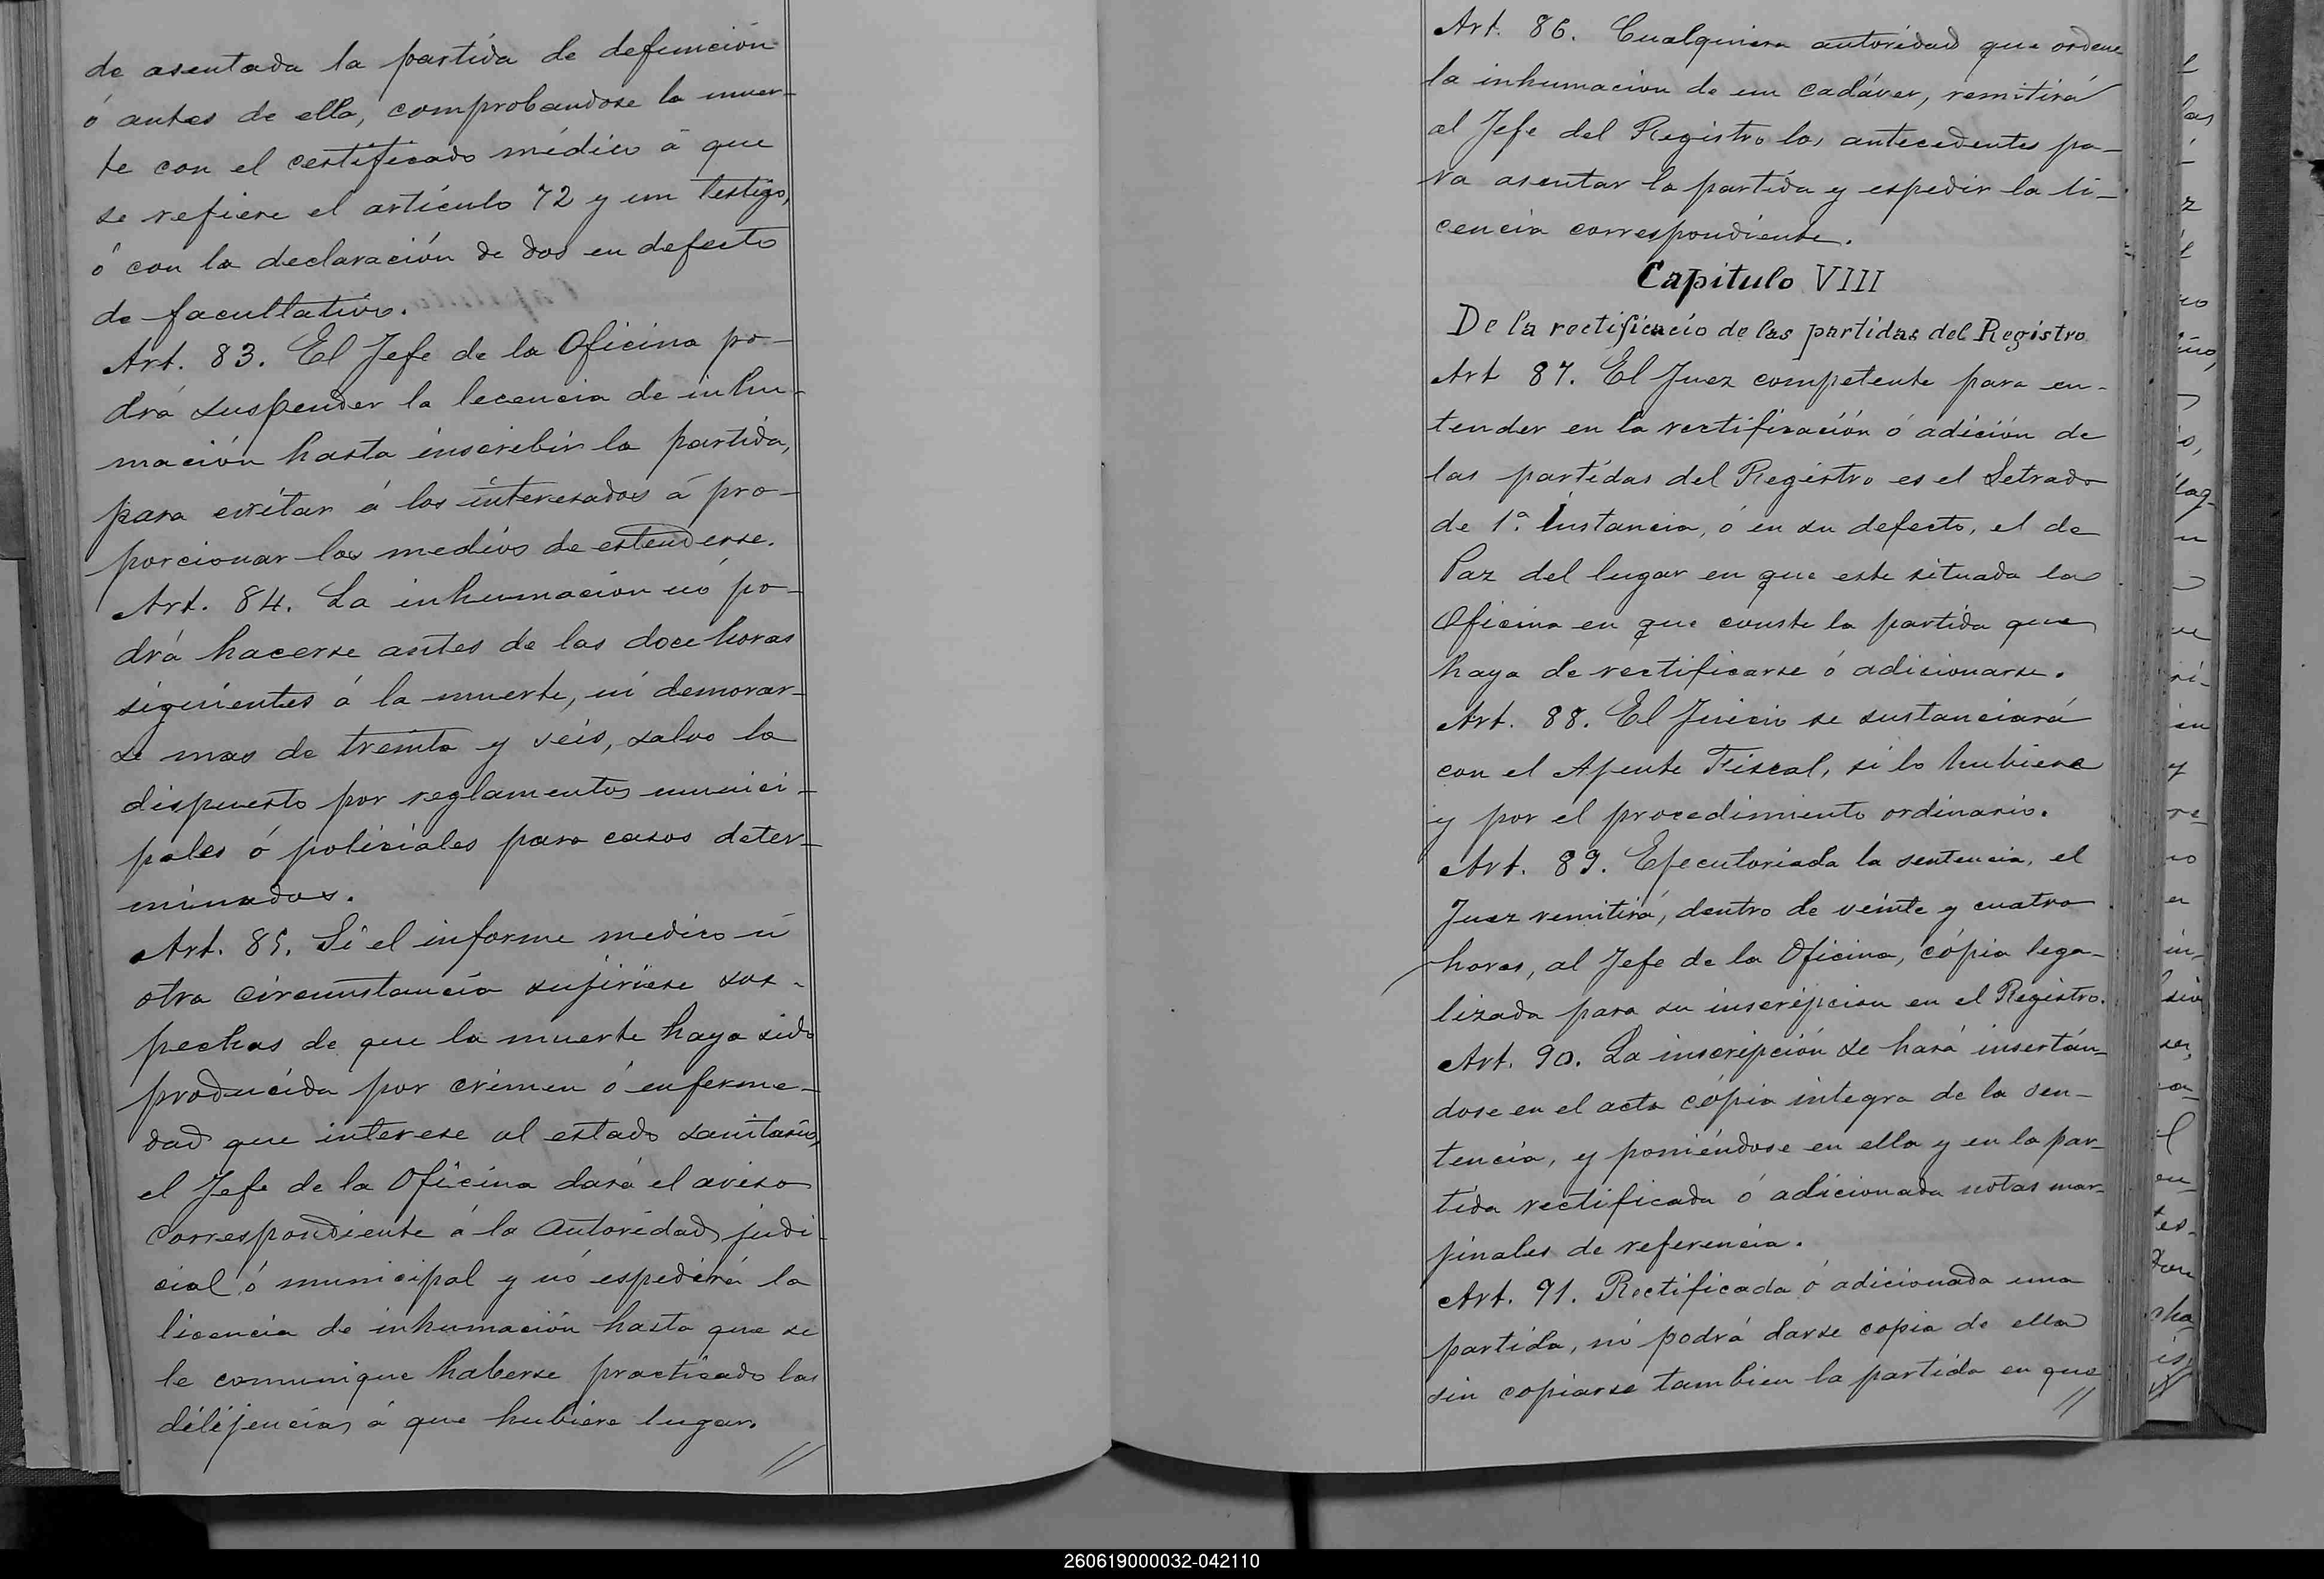 de asentada la partida de defunción
ó antes de ella, comprobandose la muer-
te con el certificado médico á que
se refiere el artículo 72 y un testigo,
ó con la declaración de dos en defecto
de facultativo.
Art. 83. El Jefe de la Oficina po-
drá suspender la lecencia de inhu-
mación hasta inscribir la partida,
para exitar á los interesados á pro-
porcionar los medios de estenderse.
Art. 84. La inhumación nó po-
drá hacerse antes de las doce horas
siguientes á la muerte, ni demorar-
se mas de treinta y seis, salvo lo
dispuesto por reglamentos munici-
pales ó policiales para casos deter-
minados.
Art. 85. Si el informe medico ú
otra circunstancia sujiriese sos-
pechas de que la muerte haya sido
producida por crimen ó enferme-
dad que interese al estado sanitario,
el Jefe de la Oficina dará el aviso
correspondiente á la autoridad judi-
cial ó municipal y nó espedirá la
licencia de inhumación hasta que se
le comunique haberse practicado las
dilijencias á que hubiere lugar.
//
Art. 86. Cualquiera autoridad que ordene
la inhumacion de un cadáver, remitirá
al Jefe del Registro los antecedentes pa-
ra asentar la partida y espedir la li-
cencia correspondiente.
Capitulo VIII
De la rectificacio de las partidas del Registro
Art 87. El Juez competente para en-
tender en la rectificación ó adición de
las partidas del Registro es el Letrado
de 1ª. Instancia, ó en su defecto, el de
Paz del lugar en que este situada la
Oficina en que conste la partida que
haya de rectificarse ó adicionarse.
Art. 88. El Juicio se sustanciará
con el Ajente Fiscal, si lo hubiere
y por el procedimiento ordinario.
Art. 89. Ejecutoriada la sentencia, el
Juez remitirá, dentro de veinte y cuatro
horas, al Jefe de la Oficina, cópia lega-
lizada para su inscripcion en el Registro.
Art. 90. La inscripción se hará insertán-
dose en el acta cópia integra de la sen-
tencia, y poniéndose en ella y en la par-
tida rectificada ó adicionada notas mar-
jinales de referencia.
Art. 91. Rectificada ó adicionada una
partida, nó podrá darse copia de ella
sin copiarse tambien la partida en que
//
260619000032-042110